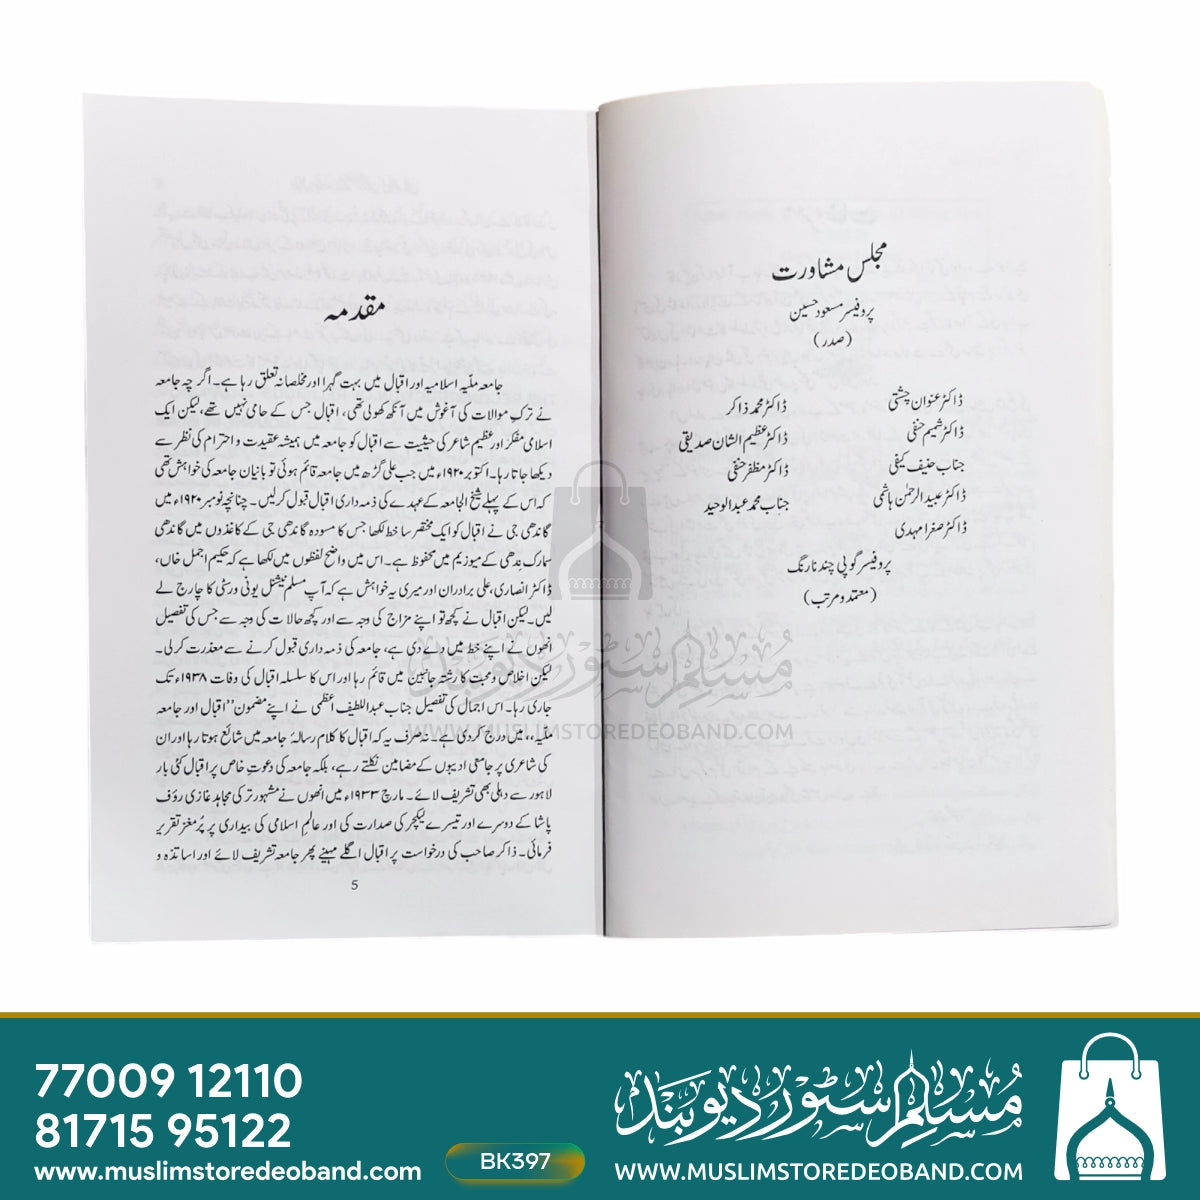 مجلس مشاورت
پروفیسر مسعود حسین
(صدر)
ڈاکٹر عنوان چشتی
ڈاکٹر شمیم حنفی
جناب حنیف کیفی
ڈاکٹر عبید الرحمٰن ہاشمی
ڈاکٹر صغرا مہدی
ڈاکٹر محمد ذاکر
ڈاکٹر عظیم الشان صدیقی
ڈاکٹر مظفر حنفی
جناب محمد عبدالوحید
پروفیسر گوپی چند نارنگ
(معتمد و مرتب)
مقدمہ
جامعہ ملّیہ اسلامیہ اور اقبال میں بہت گہرا اور مخلصانہ تعلق رہا ہے۔ اگر چہ جامعہ
نے ترکِ موالات کی آغوش میں آنکھ کھولی تھی، اقبال جس کے حامی نہیں تھے، لیکن ایک
اسلامی مفکّر اور عظیم شاعر کی حیثیت سے اقبال کو جامعہ میں ہمیشہ عقیدت و احترام کی نظر سے
دیکھا جاتا رہا۔ اکتوبر ۱۹۲۰ء میں جب علی گڑھ میں جامعہ قائم ہوئی تو بانیان جامعہ کی خواہش تھی
کہ اس کے پہلے شیخ الجامعہ کے عہدے کی ذمہ داری اقبال قبول کر لیں۔ چنانچہ نومبر ۱۹۲۰ء میں
گاندھی جی نے اقبال کو ایک مختصر سا خط لکھا جس کا مسودہ گاندھی جی کے کاغذوں میں گاندھی
سمارک ندھی کے میوزیم میں محفوظ ہے۔ اس میں واضح لفظوں میں لکھا ہے کہ حکیم اجمل خاں،
ڈاکٹر انصاری، علی برادران اور میری یہ خواہش ہے کہ آپ مسلم نیشنل یونی ورسٹی کا چارج لے
لیں۔ لیکن اقبال نے کچھ تو اپنے مزاج کی وجہ سے اور کچھ حالات کی وجہ سے جس کی تفصیل
انھوں نے اپنے خط میں دے دی ہے، جامعہ کی ذمہ داری قبول کرنے سے معذرت کر لی۔
لیکن اخلاص و محبت کا رشتہ جانبین میں قائم رہا اور اس کا سلسلہ اقبال کی وفات ۱۹۳۸ء تک
جاری رہا۔ اس اجمال کی تفصیل جناب عبداللطیف اعظمی نے اپنے مضمون "اقبال اور جامعہ
ملیہ،، میں درج کر دی ہے۔ نہ صرف یہ کہ اقبال کا کلام رسالۂ جامعہ میں شائع ہوتا رہا اور ان
کی شاعری پر جامعی ادیبوں کے مضامین نکلتے رہے، بلکہ جامعہ کی دعوتِ خاص پر اقبال کئی بار
لاہور سے دہلی بھی تشریف لائے۔ مارچ ۱۹۳۳ء میں انھوں نے مشہور ترکی مجاہد غازی رؤف
پاشا کے دوسرے اور تیسرے لیکچر کی صدارت کی اور عالمِ اسلامی کی بیداری پر پُر مغز تقریر
فرمائی۔ ذاکر صاحب کی درخواست پر اقبال اگلے مہینے پھر جامعہ تشریف لائے اور اساتذہ و
5
مُسلم سٹور دیوبند
WWW.MUSLIMSTOREDEOBAND.COM
77009 12110
81715 95122
www.muslimstoredeoband.com
BK397
مُسلم سٹور دیوبند
WWW.MUSLIMSTOREDEOBAND.COM